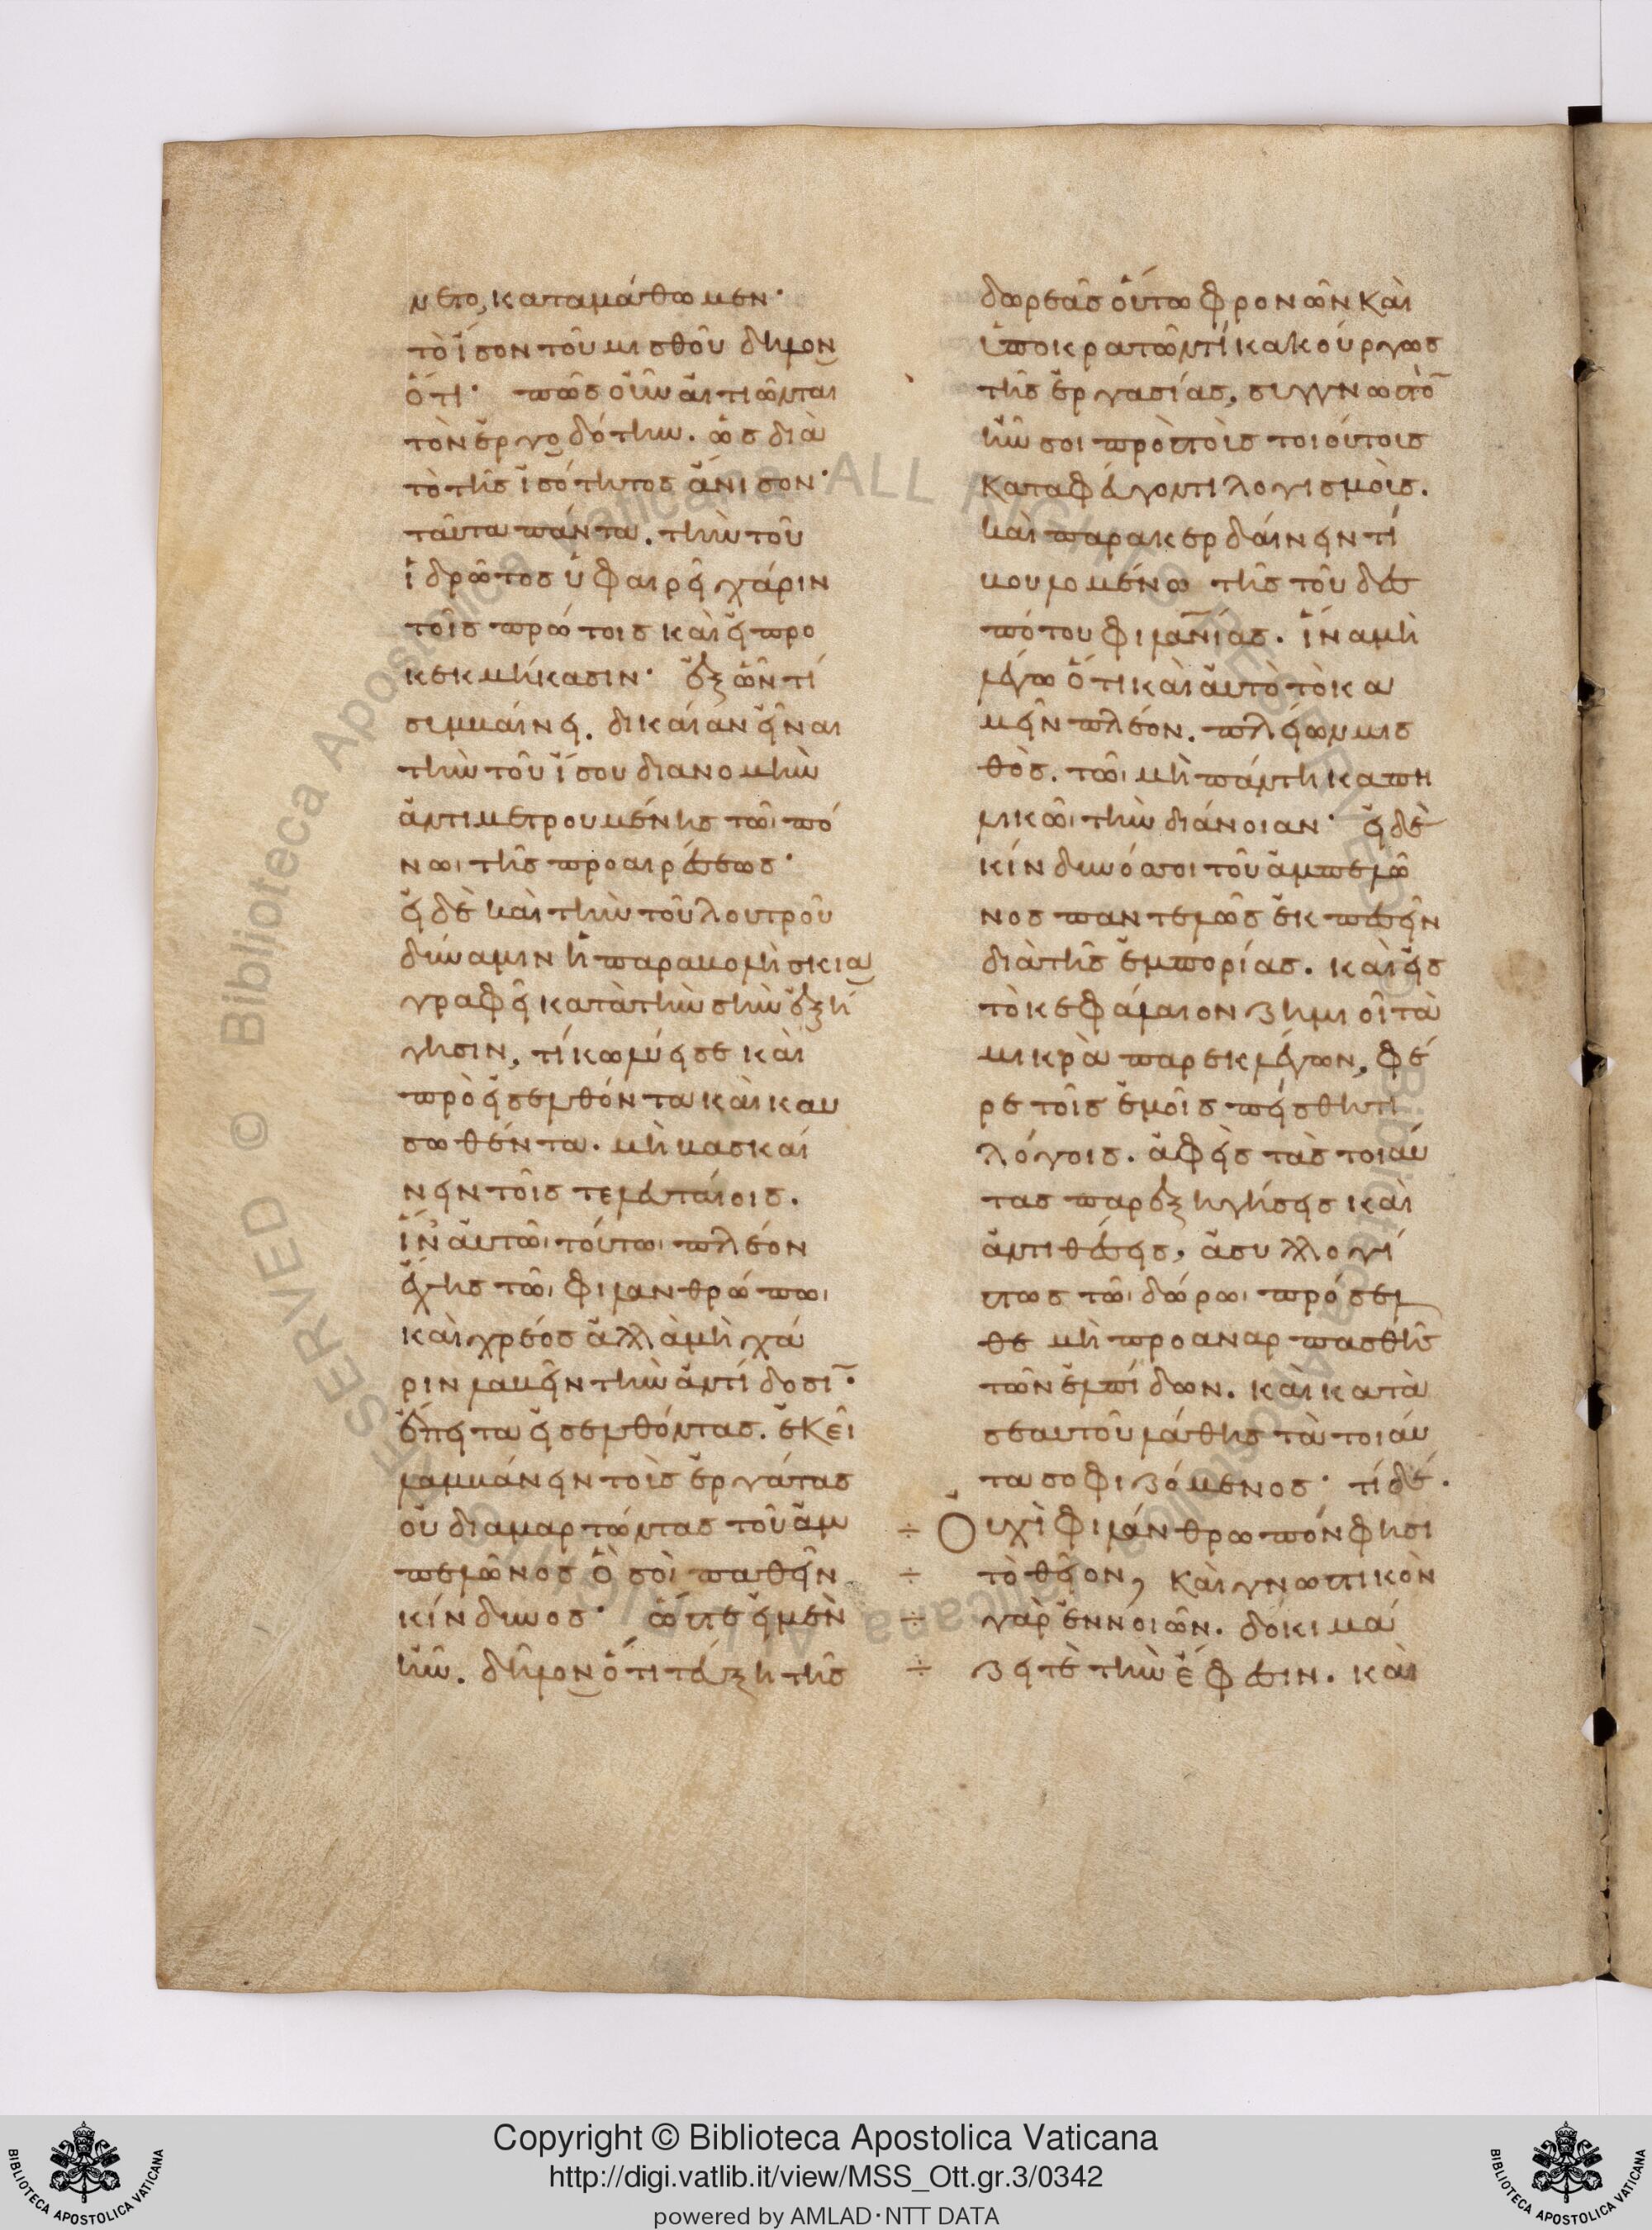 νετο, καταμάθωμεν·
τὸ ἴσον τοῦ μισθοῦ δῆλον
ὅτι· πῶς οὖν αἰτιῶνται
τὸν ἐργοδότην. ὡς διὰ
τὸ τῆς ἰσότητος ἄνισον·
ταῦτα πάντα. τὴν τοῦ
ἱδρῶτος ὑφαιρεῖ χάριν
τοῖς πρώτοις καὶ εἰ προ
κεκμήκασιν· ἐξ ὧν τί
συμβαίνει. δικαίαν εἶναι
τὴν τοῦ ἴσου διανομὴν
ἀντιμετρουμένης τῶι πό
νωι τῆς προαιρέσεως·
εἰ δὲ καὶ τὴν τοῦ λουτροῦ
δύναμιν ἡ παραβολὴ σκια
γραφεῖ κατὰ τὴν σὴν ἐξή
γησιν, τί κωλύει σε καὶ
πρὸεἰσελθόντα καὶ καυ
σωθέντα. μὴ βασκαί
νειν τοῖς τελευταίοις.
ἵν αὐτῶι τούτωι πλέον
ἔχης τῶι φιλανθρώπωι
καὶ χρέος ἀλλὰ μὴ χά
ριν λαβεῖν τὴν ἀντίδοσι̅·
ἔπειτα εἰσελθόντας. ἐκεῖ
λαμβάνειν τοὺς ἐργάτας
οὐ διαμαρτόντας τοῦ ἀμ
πελῶνος ὃ σοὶ παθεῖν
κίνδυνος· ὥστε εἰ μὲν
ἦν. δῆλον ὅτι τεύξη τῆς
δωρεᾶς οὕτω φρονῶν καὶ
ὑποκρατῶν τί κακούργως
τῆς ἐργασίας, συγγνωστὸ̅
ἦν σοι πρὸς τοῖς τοιούτοις
καταφεύγοντι λογισμοῖς.
καὶ παρακερδαίνειν τί
βουλομένω τῆς τοῦ δεσ
πότου φιλα̅νίας. ἵνα μὴ
λέγω ὅτι καὶ αὐτὸ τὸ κα
μεῖν πλέον. πλείων μισ
θὸς. τῶι μὴ πάντη καπη
λικῶι τὴν διάνοιαν· εἰ δὲ
κίνδυνός σοι τοῦ ἀμπελῶ
νος παντελῶς ἐκπεσεῖν
διὰ τῆς ἐμπορίας. καὶ εἰς
τὸ κεφάλαιον ζημιοῖ τὰ
μικρὰ παρεκλέγων, φέ
ρε τοῖς ἐμοῖς πείσθητι
λόγοις. ἀφεὶς τὰς τοιαύ
τας παρεξηγήσεις καὶ
ἀντιθέσεις, ἀσυλλογί
στως τῶι δώρωι πρόσελ
θε μὴ προαναρπασθῆς
τῶν ἐλπίδων. καὶ κατὰ
σεαυτοῦ μάθης τὰ τοιαύ
τα σοφιζόμενος· τί δέ.
÷ Οὐχὶ φιλάνθρωπόν φησι
÷ τὸ θεῖον, καὶ γνωστικὸν
÷ γὰρ ἐννοιῶν. δοκιμά
÷ ζει τὲ τὴν ἔφεσιν. καὶ
Copyright © Biblioteca Apostolica Vaticana
http://digi.vatlib.it/view/MSS_Ott.gr.3/0342
powered by AMLAD·NTT DATA
BIBLIOTECA APOSTOLICA VATICANA
BIBLIOTECA APOSTOLICA VATICANA